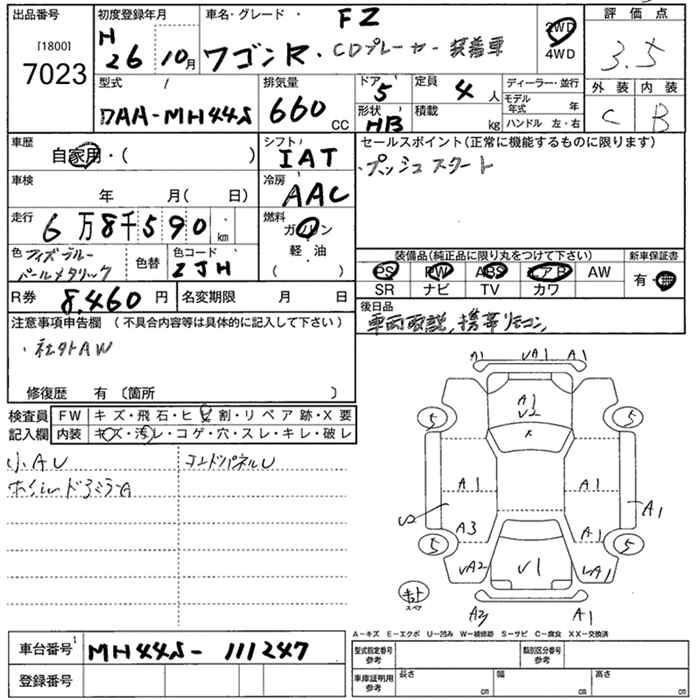 出品番号 初度登録年月 車名・グレード・ FZ 評価点
[1800] 7023 H 26 10月 ワゴンR・CDプレーヤー装着車 2WD 4WD 3.5
型式 DAA-MH44S 排気量 660 CC ドア 5 定員 4人 ディーラー・並行 外装 内装
形状 HB 積載 kg モデル年式 年 ハンドル 左・右 C B
車歴 自家用・( ) シフト IAT セールスポイント(正常に機能するものに限ります)
車検 年 月( 日) 冷房 AAC ・プッシュスタート
走行 6万8千590 km 燃料 ガソリン 軽・油 ( )
色 フィズブルーパールメタリック 色替 色コード ZJH
装備品(純正品に限り丸をつけて下さい) 新車保証書
PS PW ABS エアB AW 有・無
SR ナビ TV カワ
R券 8,460円 名変期限 月 日
後日品
車両取説,携帯リモコン
注意事項申告欄 (不具合内容等は具体的に記入して下さい)
・社外AW
修復歴 有 〔箇所 〕
検査員記入欄 FW キズ・飛石・ヒビ割・リペア跡・X要
内装 キズ・汚レ・コゲ・穴・スレ・キレ・破レ
小AU コンドパネルU
A1 VA1 A1
A1
V2
X
5 5
A1 A1
A1
A3 A1
5 5
VA2 V1 VA1
スペア
A2 A1
A-キズ E-エクボ U-凹み W-補修跡 S-サビ C-腐食 XX-交換済
車台番号 MH44S-111247
登録番号
型式指定番号参考 類別区分番号参考
車庫証明用参考 長さ cm 幅 cm 高さ cm